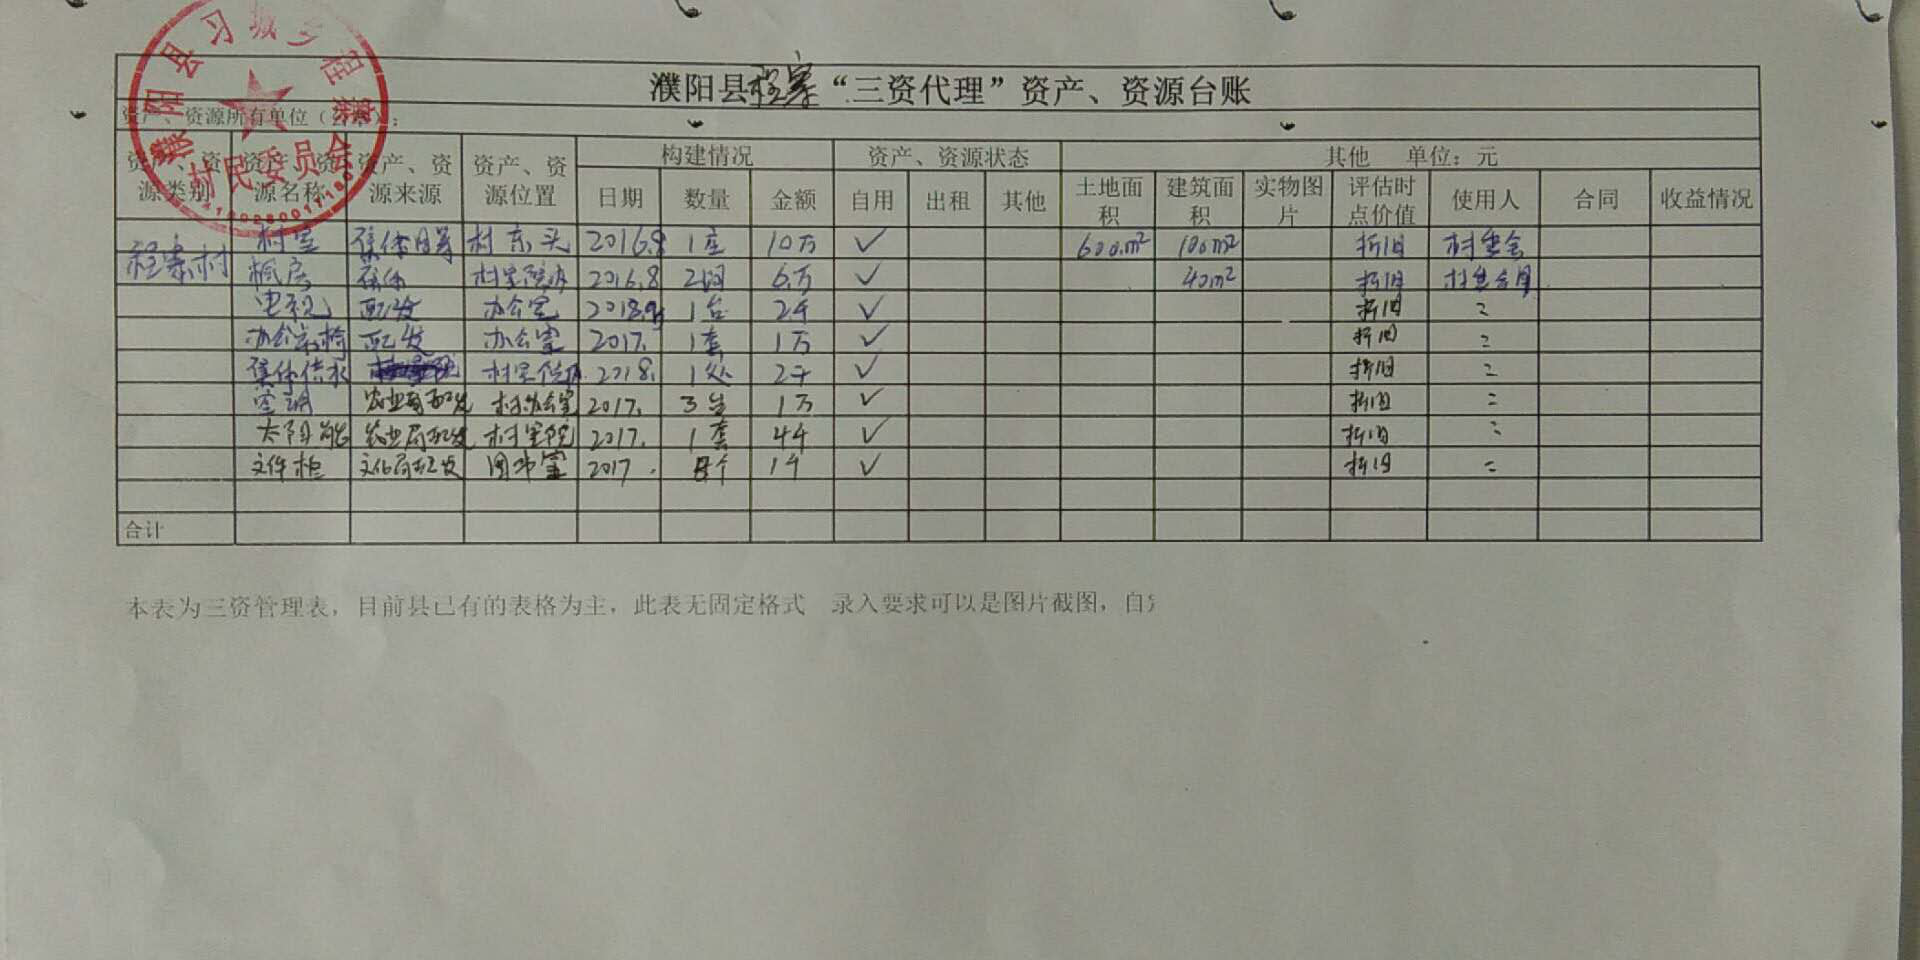 濮阳县程寨“三资代理”资产、资源台账
资产、资源所有单位
濮阳县习城乡程寨
村民委员会
资产、资源类别 资产、资源名称 资产、资源来源 资产、资源位置 构建情况 资产、资源状态 其他 单位：元
日期 数量 金额 自用 出租 其他 土地面积 建筑面积 实物图片 评估时点价值 使用人 合同 收益情况
程寨村 村室 集体自筹 村东头 2016.8 1座 10万 ✓ 600m² 100m² 折旧 村委会
集体 2016.8 2间 6万 ✓ 40m² 折旧
电视 配发 办公室 1台 2千 ✓ 折旧 〃
配发 办公室 2017. 1套 1万 ✓ 折旧 〃
集体供水 2018. 1处 2千 ✓ 折旧 〃
空调 农业局配发 村办公室 2017. 3台 1万 ✓ 折旧 〃
太阳能 农业局配发 村室院 2017. 1套 4千 ✓ 折旧 〃
文件柜 文化局配发 图书室 2017. 个 1千 ✓ 折旧 〃
合计
本表为三资管理表，目前县已有的表格为主，此表无固定格式 录入要求可以是图片截图，自